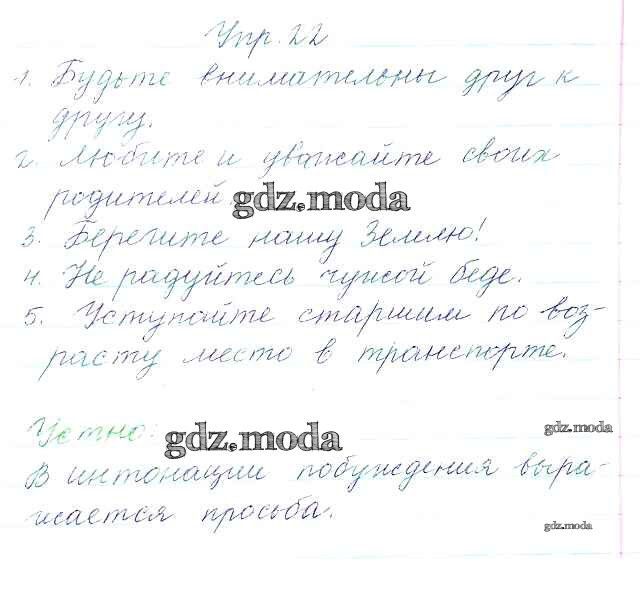 Упр. 22
1. Будьте внимательны друг к
другу.
2. Любите и уважайте своих
родителей.
gdz.moda
3. Берегите нашу Землю!
4. Не радуйтесь чужой беде.
5. Уступайте старшим по воз-
расту место в транспорте.
Устно:
gdz.moda
gdz.moda
В интонации побуждения выра-
жается просьба.
gdz.moda